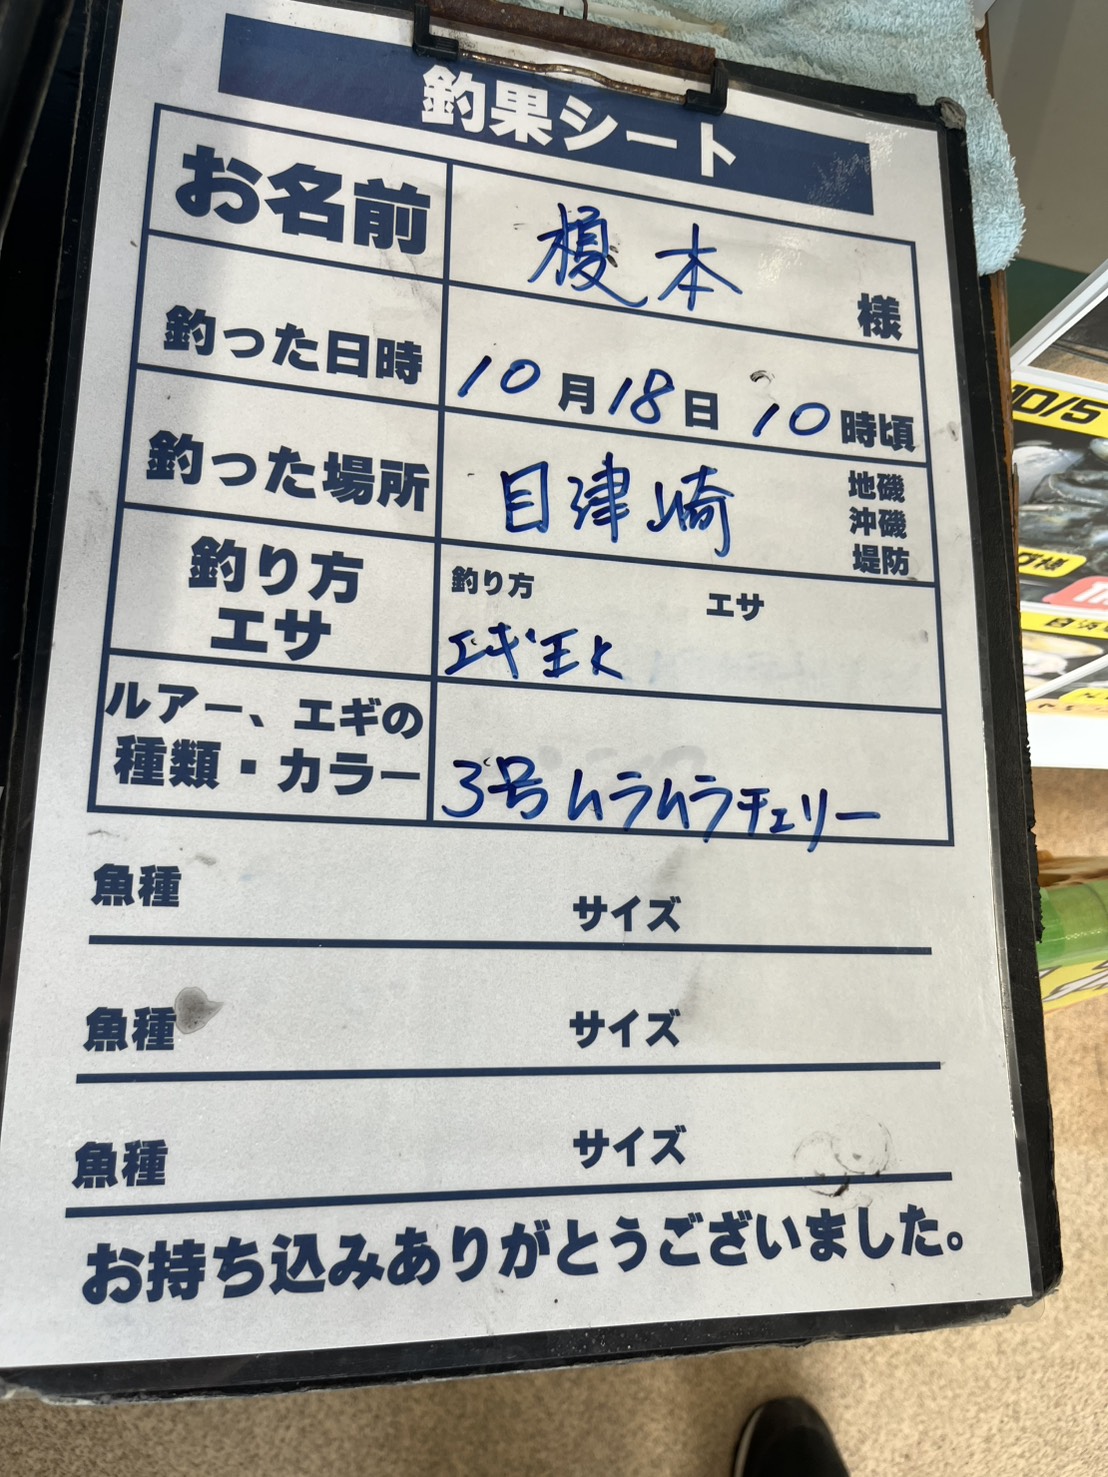 釣果シート
お名前 榎本 様
釣った日時 10月18日 10時頃
釣った場所 目津崎 地磯 沖磯 堤防
釣り方 エサ
釣り方 エサ
エギ王K
ルアー、エギの種類・カラー
3号ムラムラチェリー
魚種 サイズ
魚種 サイズ
魚種 サイズ
お持ち込みありがとうございました。
10/5